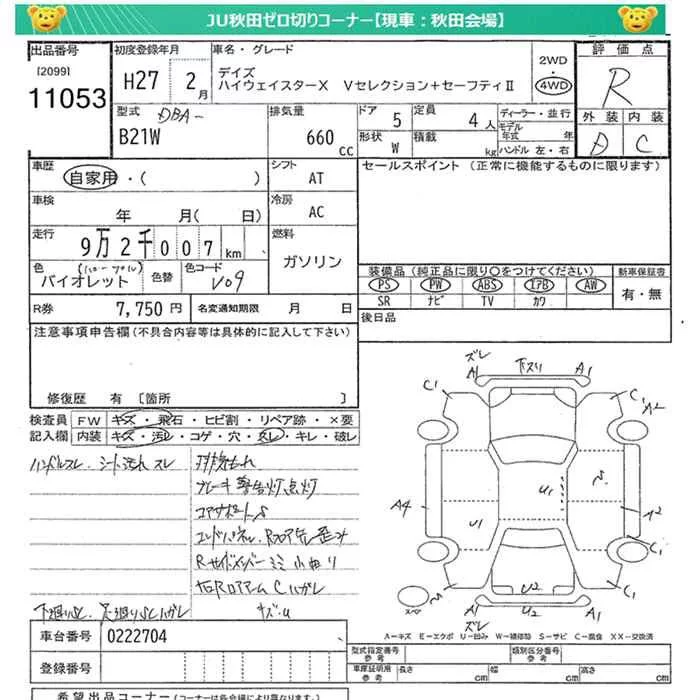 JU秋田ゼロ切りコーナー【現車：秋田会場】
出品番号
[2099]
11053
初度登録年月
H27 2月
車名・グレード
デイズ
ハイウェイスターX Vセレクション+セーフティⅡ
2WD
4WD
評価点
R
外装 内装
D C
型式 DBA-
B21W
排気量
660 cc
ドア 5
定員 4人
形状 W
積載 kg
ディーラー・並行
モデル年式 年
ハンドル 左・右
車歴
自家用・( )
シフト AT
セールスポイント (正常に機能するものに限ります)
車検
年 月( 日)
冷房 AC
走行
9万2千007km
燃料
ガソリン
色
バイオレット
色替
色コード
V09
装備品(純正品に限り○をつけてください)
新車保証書
PS PW ABS エアB AW
有・無
SR ナビ TV カワ
R券 7,750円
名変通知期限 月 日
後日品
注意事項申告欄(不具合内容等は具体的に記入して下さい)
修復歴 有 [箇所 ]
検査員記入欄
FW キズ・飛石・ヒビ割・リペア跡・×要
内装 キズ・汚れ・コゲ・穴・スレ・キレ・破レ
ハンドルスレ．シート汚れ スレ
ブレーキ警告灯点灯
コアサポートS
下廻りS
車台番号 0222704
登録番号
ズレ
A1 下スリ A1
C1 C1
A2
A4 U1 U1 A2
C1 C1
U2
A1 U2 A1
ズレ
A－キズ E－エクボ U－凹み W－補修跡 S－サビ C－腐食 XX－交換済
型式指定番号 参考
類別区分番号 参考
車庫証明用 参考
長さ cm
幅 cm
高さ cm
希望出品コーナー(コーナーは各会場により異なります。)